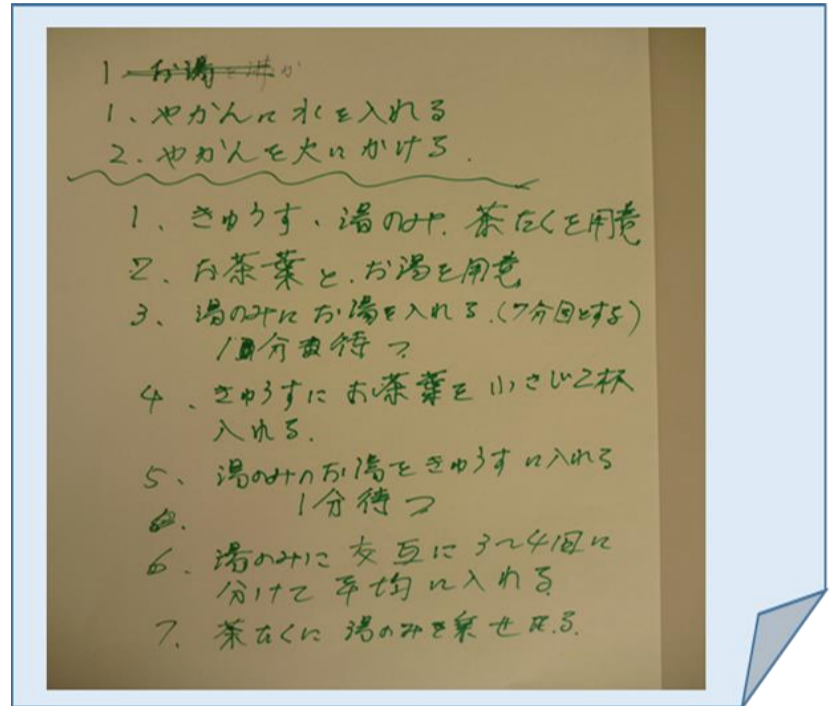 1 お湯を沸か
1、やかんに水を入れる
2.やかんを火にかける.
1、きゅうす、湯のみ、茶たくを用意
2、お茶葉と、お湯を用意
3、湯のみにお湯を入れる.(7分目とする)
1分待つ
4、きゅうすにお茶葉を小さじ2杯
入れる.
5、湯のみのお湯をきゅうすに入れる
1分待つ
6.
6、湯のみに交互に3〜4回に
分けて平均に入れる
7、茶たくに湯のみを乗せ